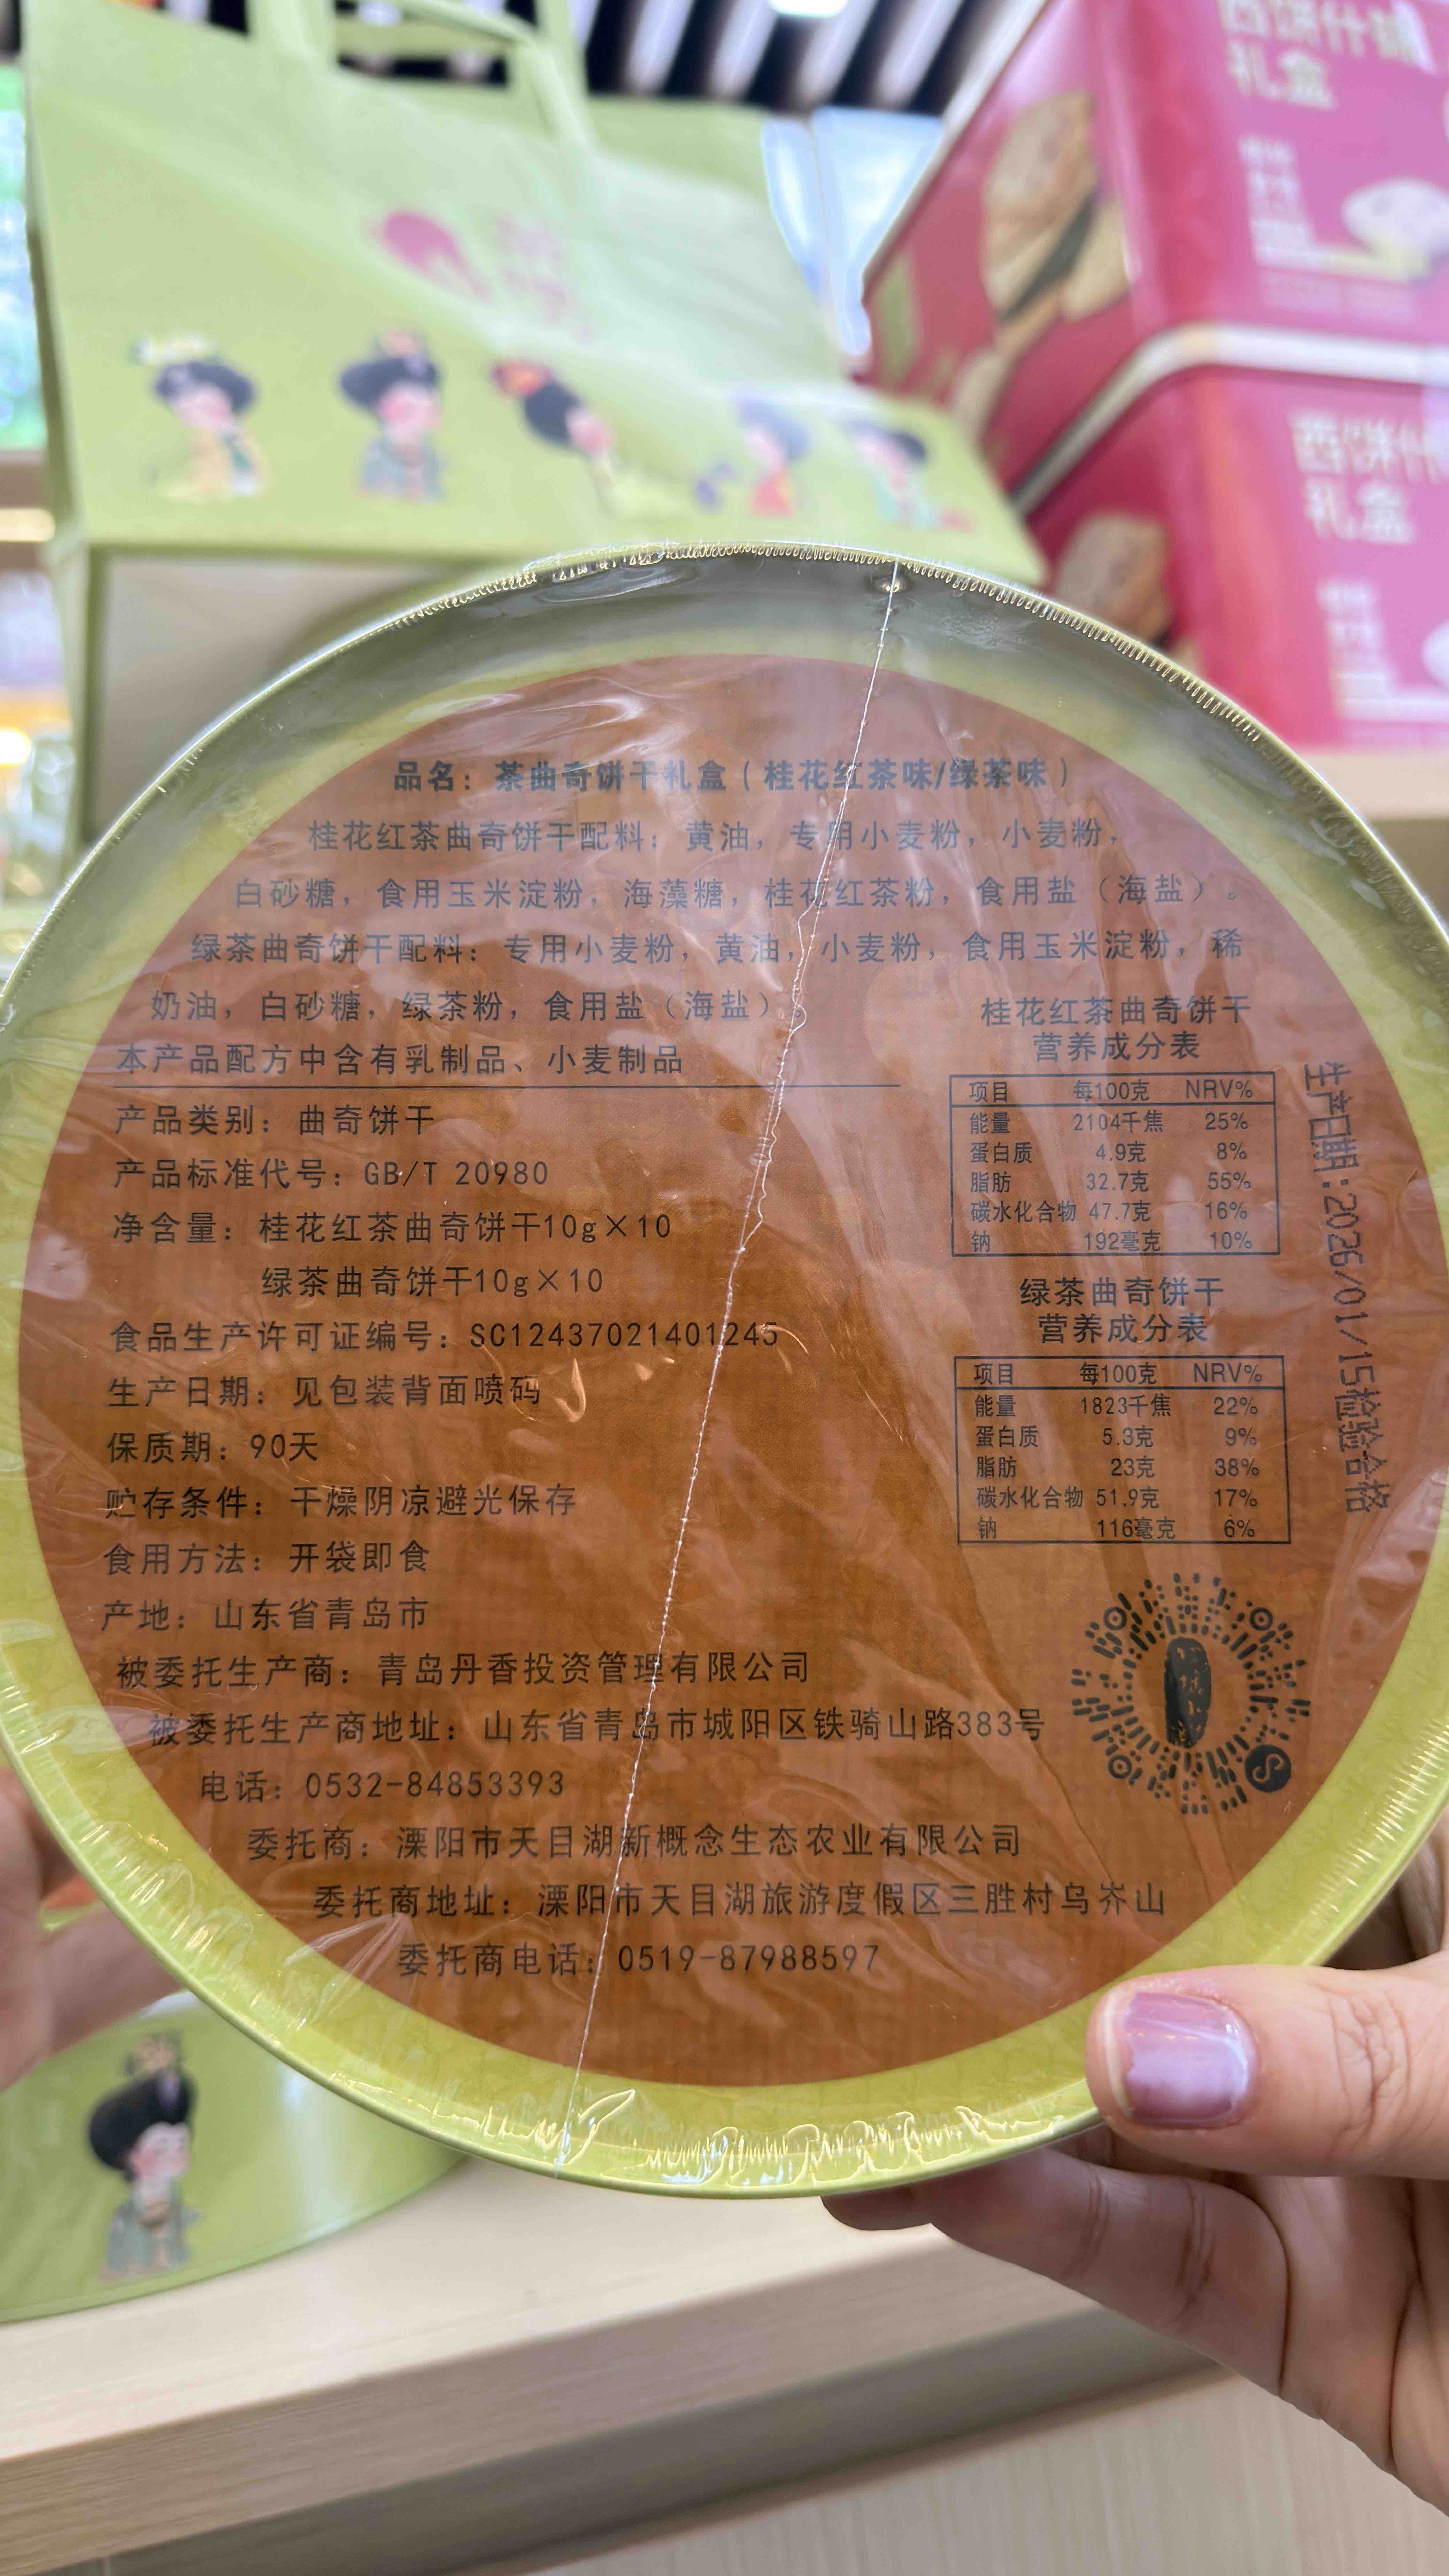 西饼什锦
礼盒
西饼什
礼盒
品名：茶曲奇饼干礼盒（桂花红茶味/绿茶味）
桂花红茶曲奇饼干配料：黄油，专用小麦粉，小麦粉，
白砂糖，食用玉米淀粉，海藻糖，桂花红茶粉，食用盐（海盐）。
绿茶曲奇饼干配料：专用小麦粉，黄油，小麦粉，食用玉米淀粉，稀
奶油，白砂糖，绿茶粉，食用盐（海盐）。
本产品配方中含有乳制品、小麦制品
产品类别：曲奇饼干
产品标准代号：GB/T 20980
净含量：桂花红茶曲奇饼干10g×10
绿茶曲奇饼干10g×10
食品生产许可证编号：SC12437021401245
生产日期：见包装背面喷码
保质期：90天
贮存条件：干燥阴凉避光保存
食用方法：开袋即食
产地：山东省青岛市
被委托生产商：青岛丹香投资管理有限公司
被委托生产商地址：山东省青岛市城阳区铁骑山路383号
电话：0532-84853393
委托商：溧阳市天目湖新概念生态农业有限公司
委托商地址：溧阳市天目湖旅游度假区三胜村乌岕山
委托商电话：0519-87988597
桂花红茶曲奇饼干
营养成分表
项目 每100克 NRV%
能量 2104千焦 25%
蛋白质 4.9克 8%
脂肪 32.7克 55%
碳水化合物 47.7克 16%
钠 192毫克 10%
绿茶曲奇饼干
营养成分表
项目 每100克 NRV%
能量 1823千焦 22%
蛋白质 5.3克 9%
脂肪 23克 38%
碳水化合物 51.9克 17%
钠 116毫克 6%
生产日期:2026/01/15检验合格